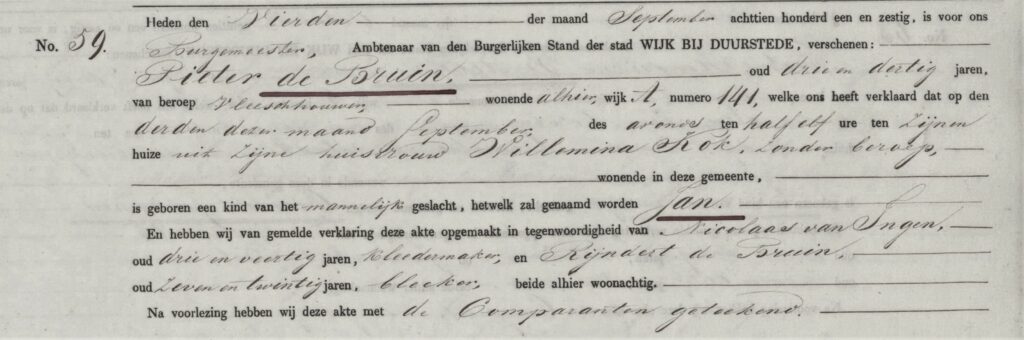 Heden den Vierden der maand September achttien honderd een en zestig, is voor ons
No. 59. Burgemeester, Ambtenaar van den Burgerlijken Stand der stad WIJK BIJ DUURSTEDE, verschenen:
Pieter de Bruin, oud drie en dertig jaren,
van beroep Vleeschhouwer, wonende alhier, wijk A, numero 141, welke ons heeft verklaard dat op den
derden dezer maand September, des avonds ten half elf ure ten Zijnen
huize uit Zijne huisvrouw Willemina Kok, Zonder beroep,
wonende in deze gemeente,
is geboren een kind van het mannelijk geslacht, hetwelk zal genaamd worden Jan.
En hebben wij van gemelde verklaring deze akte opgemaakt in tegenwoordigheid van Nicolaas van Ingen,
oud drie en veertig jaren, kleedermaker, en Rijndert de Bruin,
oud Zeven en twintig jaren, bleeker, beide alhier woonachtig.
Na voorlezing hebben wij deze akte met de Comparanten geteekend.